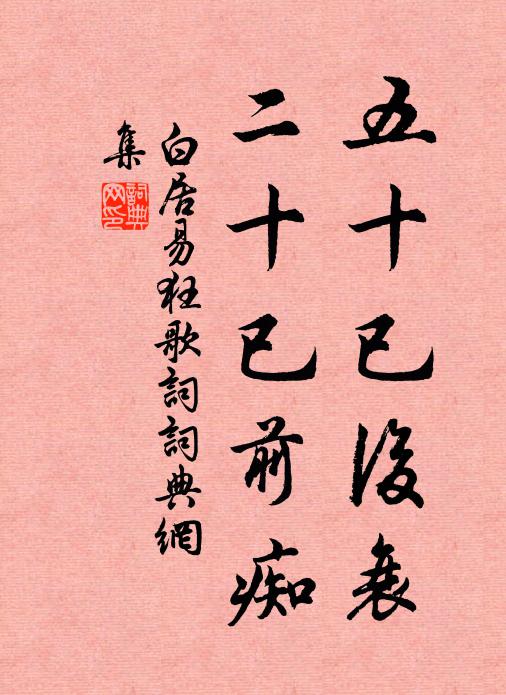 五十已後衰
二十已前痴
白居易狂歌詞詞典網
集
詞典
网印